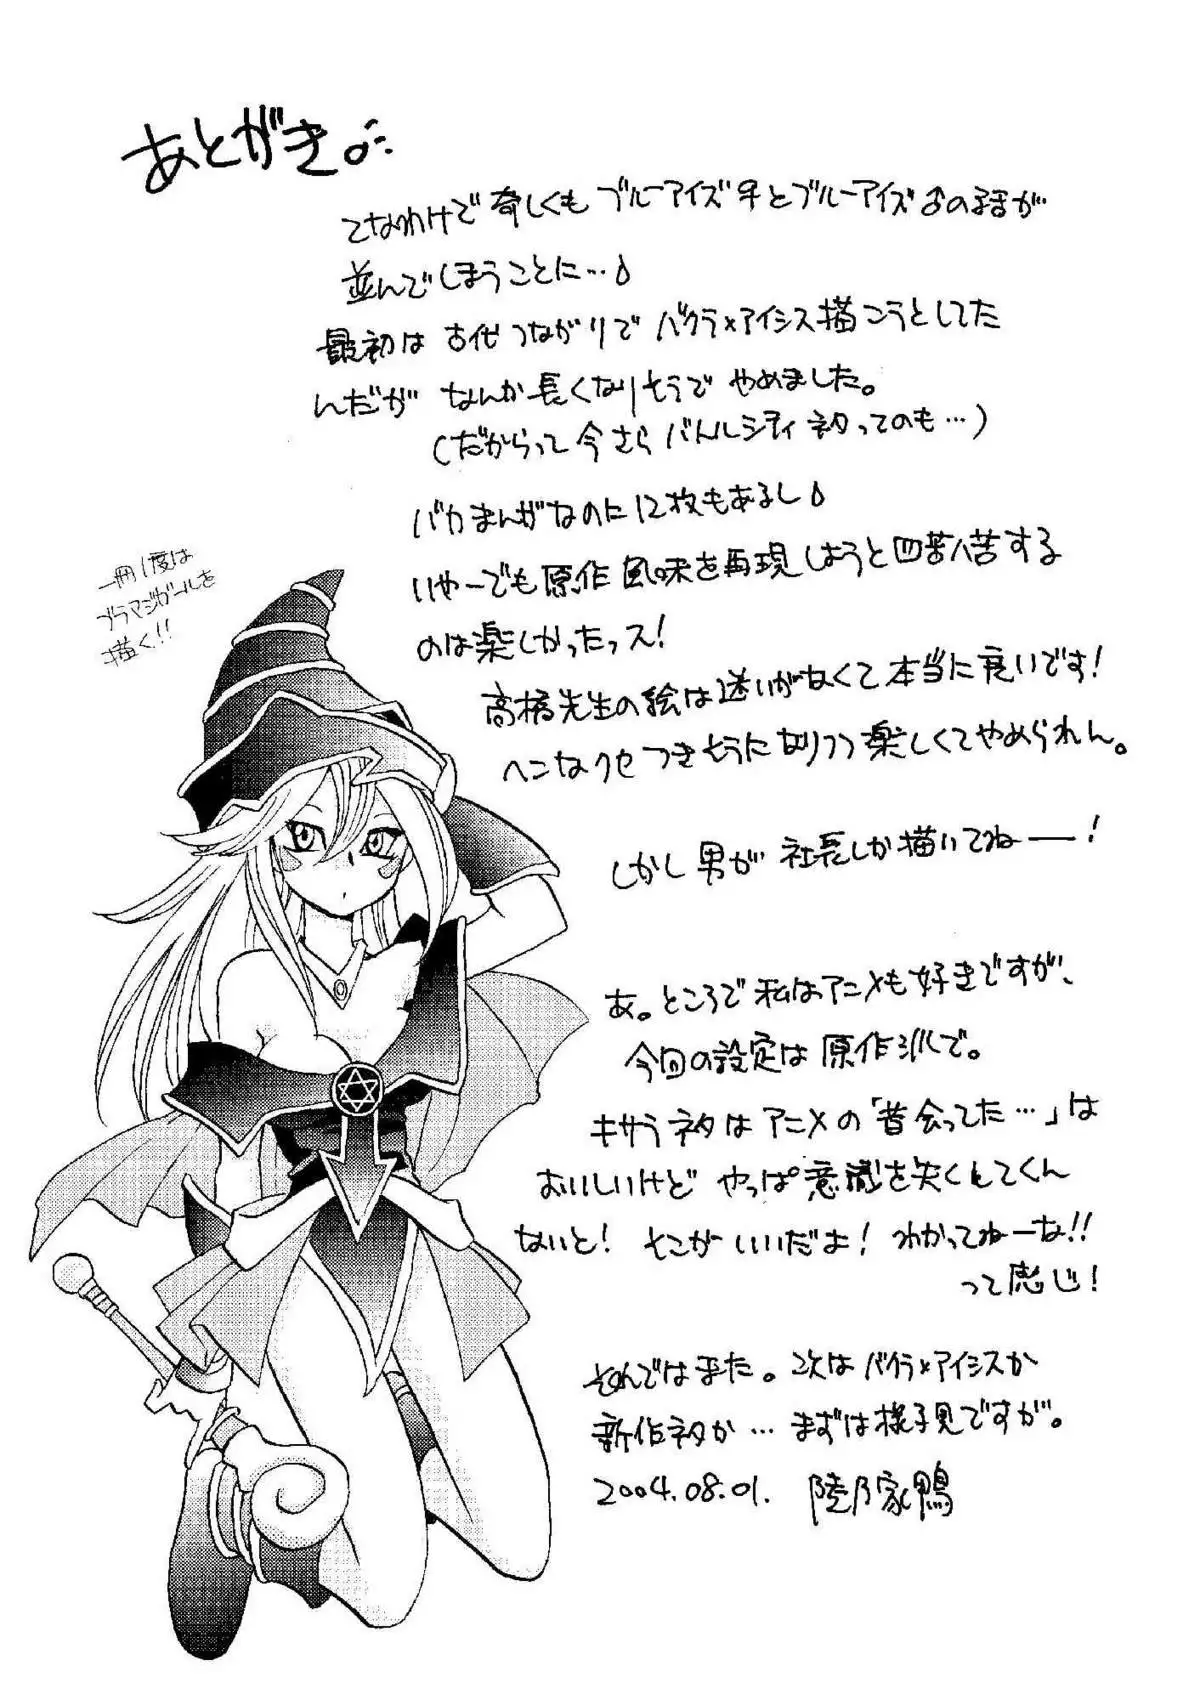 あとがき。
てなわけで奇しくもブルーアイズ♀とブルーアイズ♂の話が
並んでしまうことに…♪
最初は古代つながりでバクラ×アイシス描こうとしてた
んだが なんか長くなりそうでやめました。
(だからって今さらバトルシティネタってのも…)
バカまんがなのに12枚もあるし♪
いやーでも原作風味を再現しようと四苦八苦する
のは楽しかったっス!
高橋先生の絵は迷いがなくて本当に良いです!
ヘンなクセつきそうになりつつ楽しくてやめられん。
しかし男が社長しか描いてねーー!
あ。ところで私はアニメも好きですが、
今回の設定は原作ルールで。
キサラネタはアニメの「昔会ってた…」は
おいしいけど やっぱ意識を失くしててくん
ないと! そこがいいだよ! わかってねーな!!
って感じ!
それではまた。次はバクラ×アイシスか
新作ネタか…まずは様子見ですが。
2004.08.01. 陸乃家鴨
一冊1度は
ブラマジガールを
描く!!